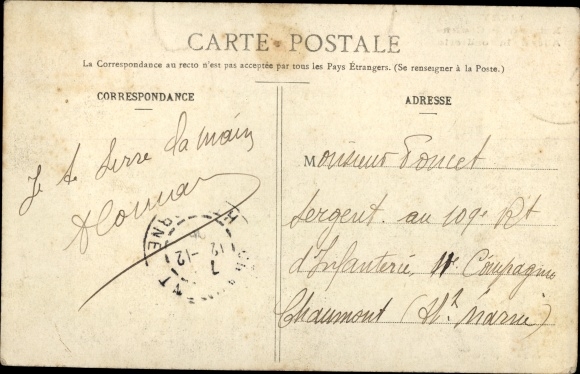 CARTE POSTALE
La Correspondance au recto n'est pas acceptée par tous les Pays Étrangers. (Se renseigner à la Poste.)
CORRESPONDANCE
Je te serre la main
ADRESSE
Monsieur Poncet
Sergent au 109e Rt
d'Infanterie, 11e Compagnie
Chaumont (Hte Marne)